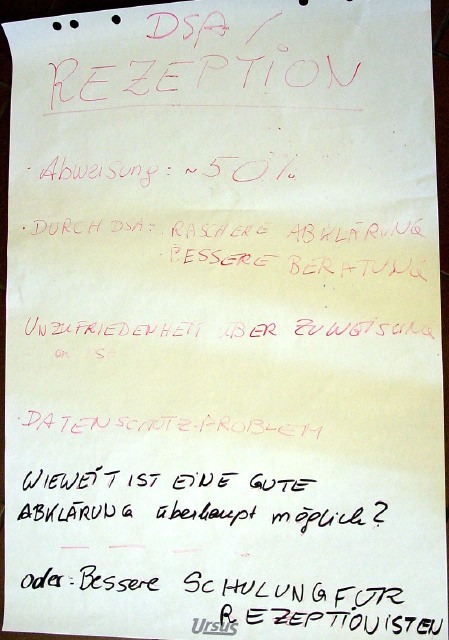 DSA /
REZEPTION
· Abweisung: ~50%
· DURCH DSA: RASCHERE ABKLÄRUNG
· BESSERE BERATUNG
UNZUFRIEDENHEIT ÜBER ZUWEISUNG
· DATENSCHUTZ-PROBLEM
WIEWEIT IST EINE GUTE
ABKLÄRUNG überhaupt möglich?
oder: Bessere SCHULUNG FÜR
REZEPTIONISTEN
Ursus